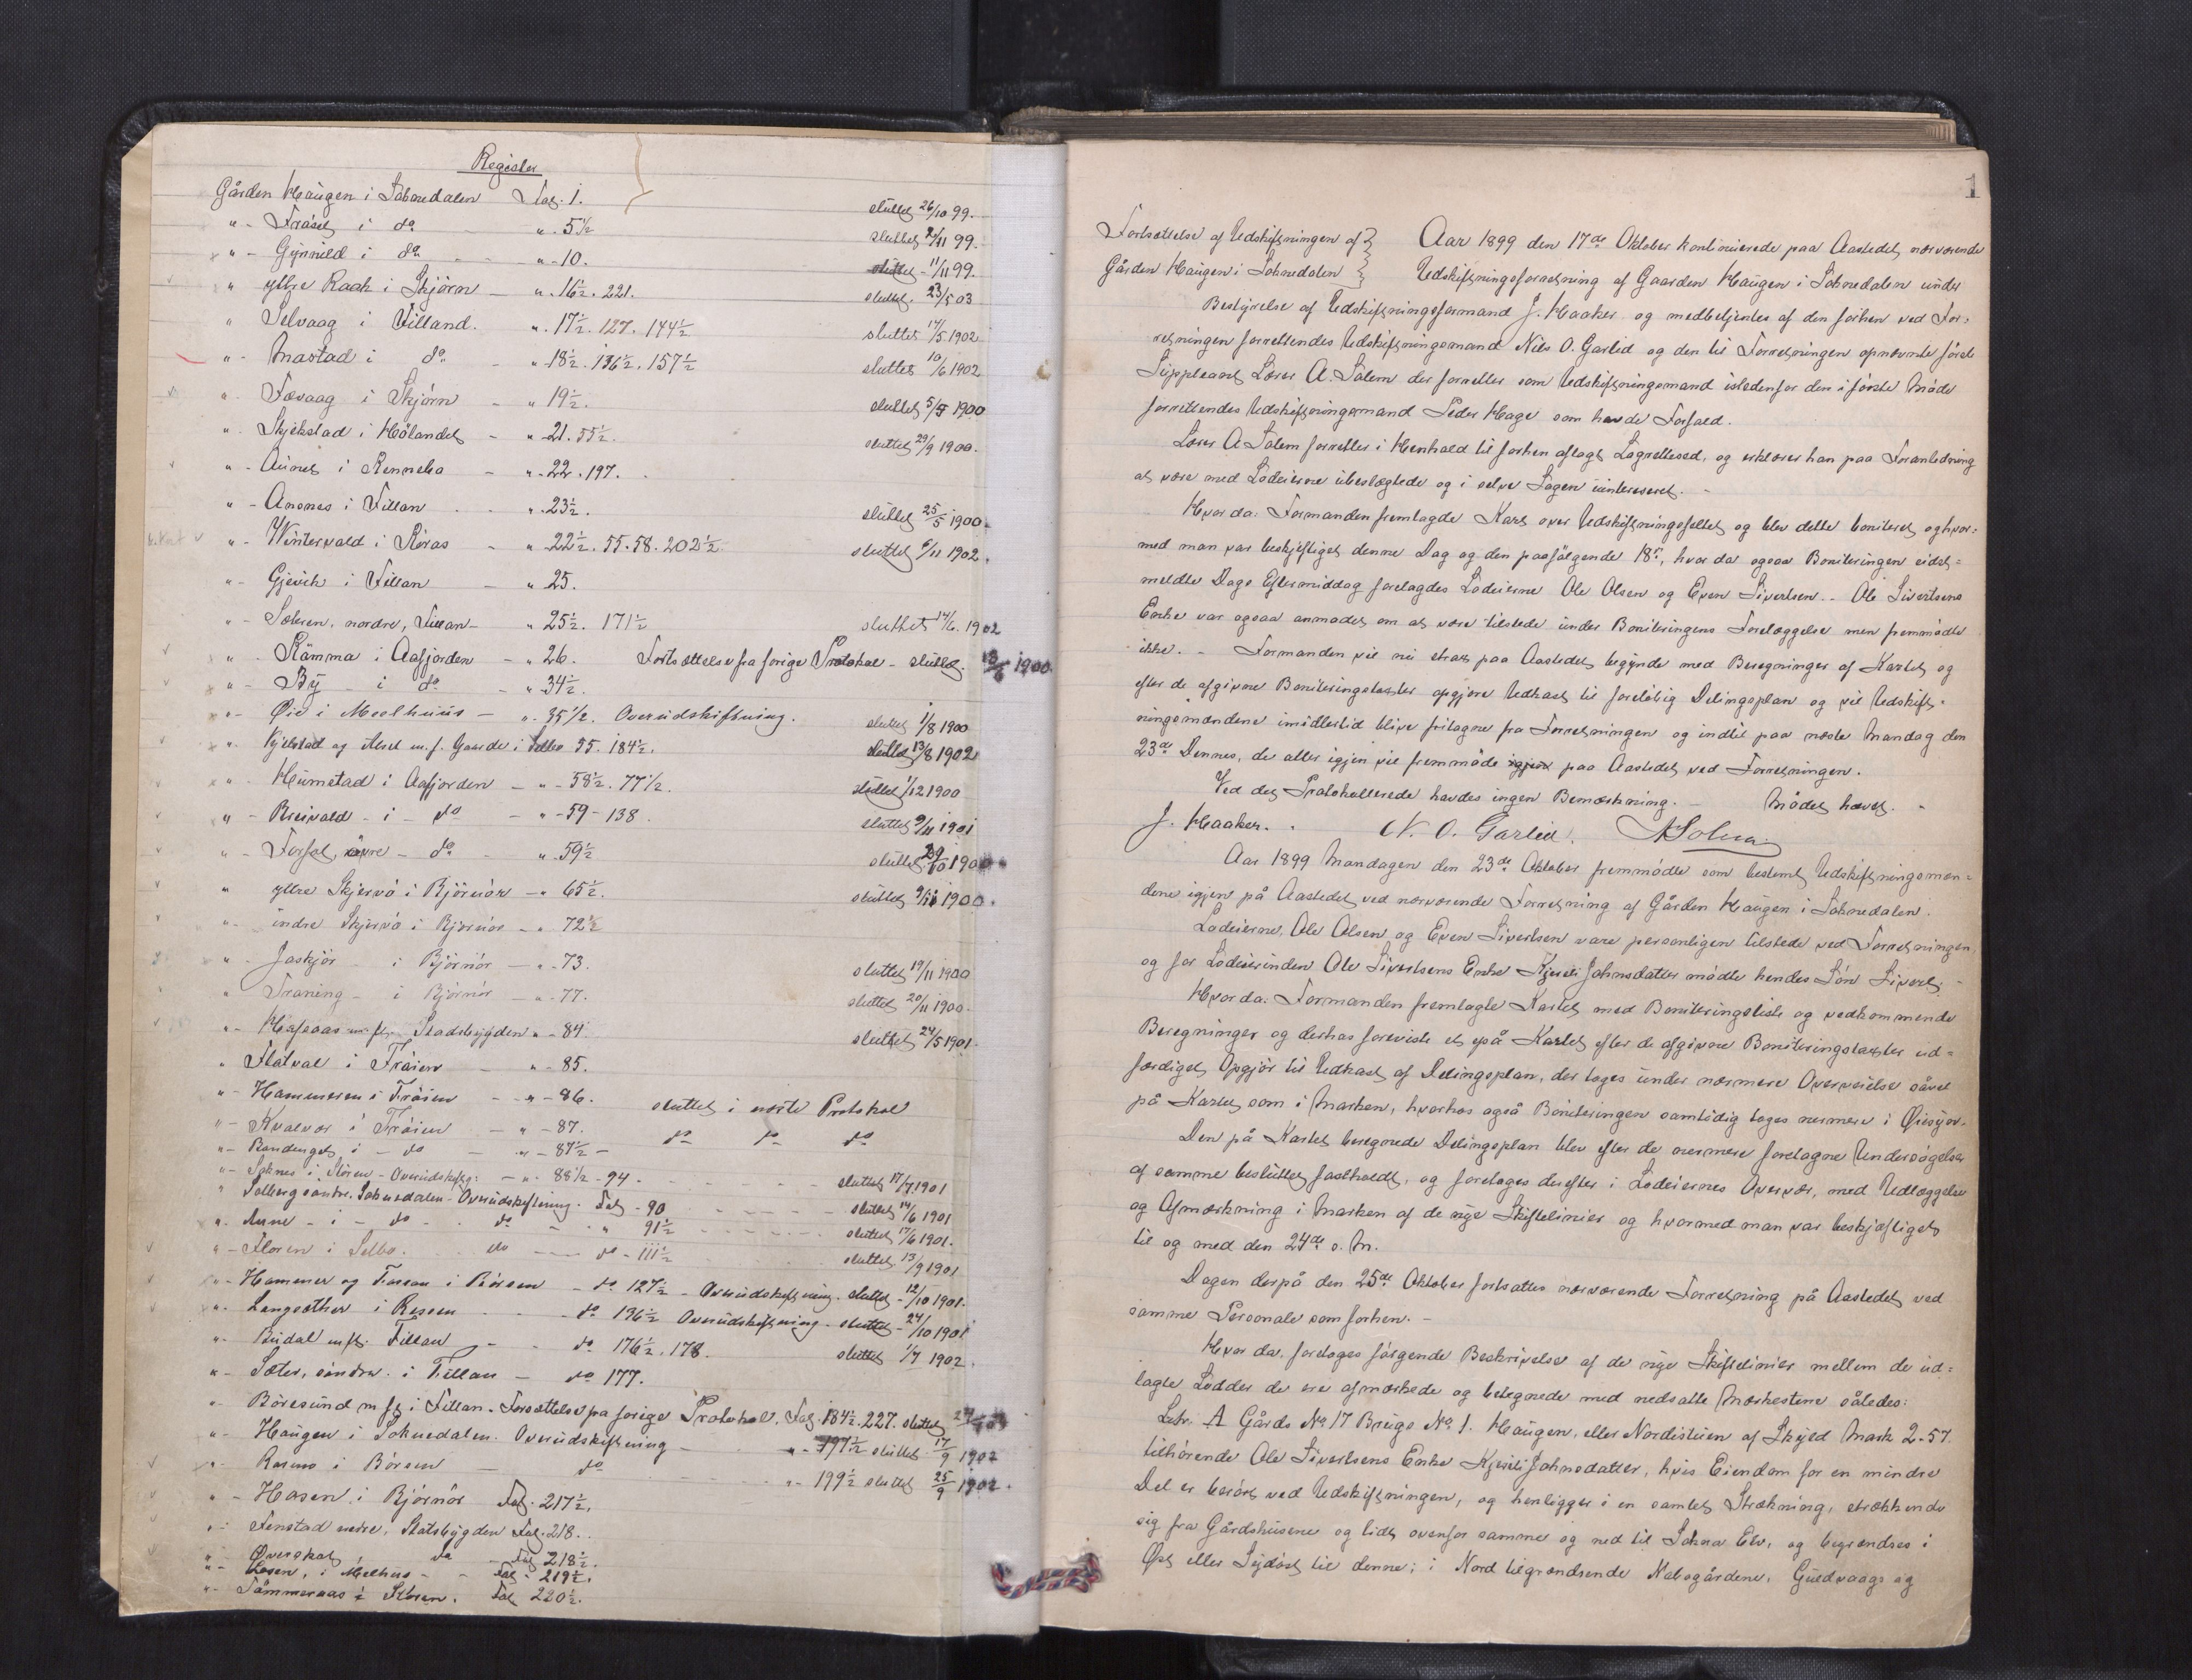 Register
Gården Haugen i Soknedalen Fol. 1. sluttet 26/10 99.
" - Fraset i do " 5 1/2 sluttet 2/11 99.
" - Gynnild i do - " - 10. sluttet - 11/11 99.
" ytre Raak i Skjørn - " . 16 1/2 . 221. sluttet. 23/5 03
" Selvaag i Filland. " . 17 1/2 . 127. 144 1/2 sluttet 17/5 1902
" - Mastad i do - " 18 1/2 . 136 1/2 . 157 1/2 sluttet 10/6 1902
" . Fævaag i Skjørn - " 19 1/2. sluttet 5/5 1900
" . Skjekstad i Hølandet - " 21. 55 1/2. sluttet 29/9 1900.
" - Aunet i Rennebo - " - 22 . 197.
" - Ansnes i Fillan " . 23 1/2. sluttet 25/5 1900.
" - Wintervold i Røros - " 22 1/2 . 55 . 58 . 202 1/2 sluttet 6/11 1902.
" - Gjevik i Fillan - " 25.
" - Sæteren, nordre, Fillan - " 25 1/2 . 171 1/2 sluttet 14/6. 1902
" - Rømma i Aafjorden - " 26. Fortsættelse fra forige Protokol - sluttet. 1900.
" - By - i do - " 34 1/2.
" - Øie i Meelhuus - " . 35 1/2. Overudskiftning. sluttet 1/8 1900
" . Kjelstad og m. f. Gaarde i Selbo 55. 184 1/2. sluttet 13/8 1902
" . Humstad i Aafjorden - " - 58 1/2. 77 1/2. sluttet 1/12 1900
" - Breivold - i - do - " - 59 - 138. sluttet 9/11 1901
" - Forfot, øvre - do - " . 59 1/2 sluttet 29/10 1900
" ytre Skjervø i Bjørnør - " 65 1/2. sluttet 9/11 1900.
" . indre Skjervø i Bjørnør - " 72 1/2
" - Jøskjør - i Bjørnør - " . 73. sluttet 19/11 1900
" Traning - i Bjørnør - " . 77. sluttet 20/11 1900.
" - Hafsaas m. fl. Stadsbygden " - 84. sluttet 24/5 1901.
" Flatval i Frøien - " - 85.
" - Hammeren i Frøien - " - 86. sluttet i næste Protokol
" - Kvalvær i Frøien - " - 87. do do do
" - i - do - " - 87 1/2 -
" - Soknes i Støren - Overudskiftg: - " . 88 1/2 - 94. sluttet 17/7 1901
" Solberg søndre. Soknedalen - Overudskiftning. Fol - 90 sluttet 14/6 1901
" . Aune - i - do - do - " 91 1/2 sluttet 17/6 1901.
" - Floren i Selbo. do - do - 111 1/2 sluttet 13/9 1901
" - Hammer og i Børsen - do 127 1/2 - Overudskiftning. sluttet - 12/10 1901.
" . Langsæther i Rissen - do 136 1/2 Overudskiftning - sluttet - 24/10 1901
" . Budal m fl. Fillan - do 176 1/2 . 178. sluttet 1/7 1902.
" - Sæter, søndre. i Fillan - do 177.
" . Børøsund m fl i Fillan. Forsættelse fra forige Protokol. Fol. 184 1/2 . 227. sluttet
" . Haugen i Soknedalen. Overudskiftning - " - 197 1/2 sluttet 17/9 1902
" - i Børsen - do " - 199 1/2 sluttet 25/9 1902.
" - Hosen i Bjørnør Fol. 217 1/2.
" - Fenstad nedre, Statsbygden Fol. 218.
" - Øverskat do - Fol 218 1/2.
" - Losen, i Melhus - - Fol - 219 1/2.
" - Tømmeraas i Støren. Fol 220 1/2.
1
Fortsættelse af Udskiftningen af
Gården Haugen i Soknedalen
Aar 1899 den 17de Oktober kontinuerede paa Aastedet nærværende
Udskiftningsforretning af Gaarden Haugen i Soknedalen under
Bestyrelse af Udskiftningsformand J. Haaker og medbetjentes af den forhen ved For-
retningen forrettendes Udskiftningsmand Nils O. Garlid og den til Forretningen opnævnte første
Suppleant Lærer A. Solem der forretter som Udskiftningsmand istedenfor den i første Møde
forrettendes Udskiftningsmand Peder Hage som havde Forfald.
Lærer A Solem forretter i Henhold til forhen aflagt Lagrettesed, og erklærer han paa Foranledning
at være med Lodeierne ubeslægtede og i selve Sagen uinteresseret. -
Hvor da: Formanden fremlagde Kart over Udskiftningsfeltet og blev dette boniteret, og hvor-
med man var beskjeftiget denne Dag og den paafølgende 18de, hvor da ogsaa Boniteringen sidst-
meldte Dags Eftermiddag forelagdes Lodeierne Ole Olsen og Even Sivertsen. - Ole Sivertsens
Enke var ogsaa anmodet om at være tilstede under Boniteringens Forelæggelse men fremmødte
ikke. - Formanden vil nu strax paa Aastedet begynde med Beregninger af Kartet og
efter de afgivne Boniteringstaxter opgjøre Udkast til foreløbig Delingsplan og vil Udskift-
ningsmændene imidlertid blive fritagne fra Forretningen og indtil paa næste Mandag den
23de Dennes, de alle igjen vil fremmøde igjen paa Aastedet ved Forretningen.
Ved det Protokollerede havdes ingen Bemærkning. - Mødet hævet. -
J. Haaker. . N. O. Garlid. A Solem
Aar 1899 Mandagen den 23de Oktober fremmødte som bestemt Udskiftningsmæn-
dene igjen på Aastedet ved nærværende Forretning af Gården Haugen i Soknedalen.
Lodeierne, Ole Olsen og Even Sivertsen vare personligen tilstede ved Forretningen
og for Lodeierinden Ole Sivertsens Enke Kjersti Johnsdatter mødte hendes Søn Sivert. -
Hvor da: Formanden fremlagte Kartet med Boniteringsliste og vedkommende
Beregninger og derhos foreviste et på Kartet efter de afgivne Boniteringstaxter ud-
færdiget Opgjør til Udkast af Delingsplan, der toges under nærmere Overveielse såvel
på Kartet som i Marken, hvorhos også Boniteringen samtidig toges nærmere i Øiesyn.
Den på Kartet beregnede Delingsplan blev efter de nærmere foretagne Undersøgelser
af samme besluttet fastholdt, og foretoges derefter i Lodeiernes Overvær, med Udlæggelse
og Afmærkning i Marken af de nye Skiftelinier og hvormed man var beskjæftiget
til og med den 24de s. M.
Dagen derpå den 25de Oktober fortsattes nærværende Forretning på Aastedet ved
samme Personale som forhen. -
Hvor da. foretoges følgende Beskrivelse af de nye Skiftelinier mellem de ud-
lagte Lodder de ere afmærkede og betegnede med nedsatte Mærkestene således:
Litr. A Gårds No 17 Brugs No 1. Haugen, eller Nordistuen af Skyld Mark 2-57.
tilhørende Ole Sivertsens Enke Kjersti Johnsdatter, hvis Eiendom for en mindre
Del er berørt ved Udskiftningen, og henligger i en samlet Strækning, strækkende
sig fra Gårdshusene og lidt ovenfor samme og ned til Sokna Elv, og begrændses i
Øst eller Sydøst til denne; i Nord tilgrændsende Nabogårdene, Guldvaags og